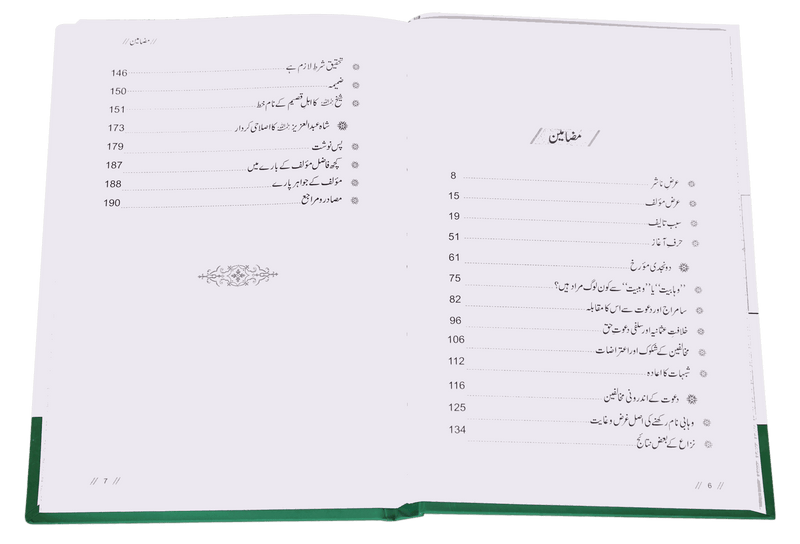 // مضامین //
عرض ناشر 8
عرض مؤلف 15
سبب تالیف 19
حرف آغاز 51
دو نجدی مؤرخ 61
”وہابیت“ یا ”وہبیت“ سے کون لوگ مراد ہیں؟ 75
سامراج اور دعوت سے اس کا مقابلہ 82
خلافتِ عثمانیہ اور سلفی دعوتِ حق 96
مخالفین کے شکوک اور اعتراضات 106
شبہات کا اعادہ 112
دعوت کے اندرونی مخالفین 116
وہابی نام رکھنے کی اصل غرض و غایت 125
نزاع کے بعض نتائج 134
// 6 //
// مضامین //
تحقیق شرط لازم ہے 146
ضمیمہ 150
شیخ رحمہ اللہ کا اہل قصیم کے نام خط 151
شاہ عبدالعزیز رحمہ اللہ کا اصلاحی کردار 173
پس نوشت 179
کچھ فاضل مؤلف کے بارے میں 187
مؤلف کے جواہر پارے 188
مصادر و مراجع 190
// 7 //